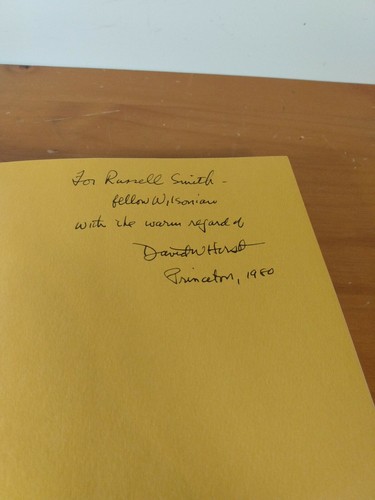 For Russell Smith -
fellow Wilsonian
with the warm regard of
David W Hirst
Princeton, 1980